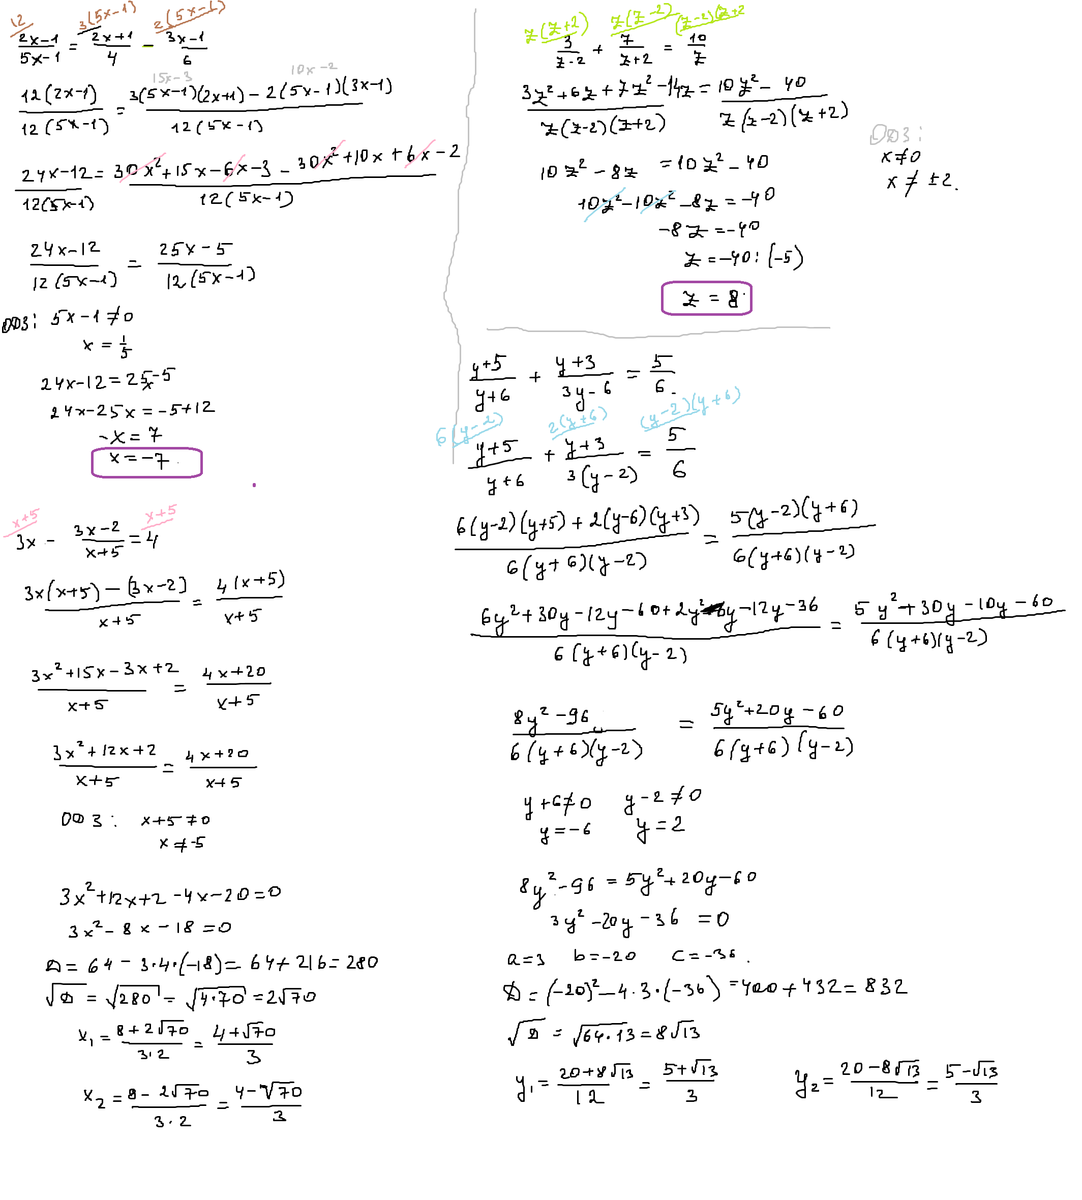 12 3(5x-1) 2(5x-1)
2x-1/5x-1 = 2x+1/4 - 3x-1/6
15x-3 10x-2
12(2x-1)/12(5x-1) = 3(5x-1)(2x+1)-2(5x-1)(3x-1)/12(5x-1)
24x-12/12(5x-1) = 30x²+15x-6x-3-30x²+10x+6x-2/12(5x-1)
24x-12/12(5x-1) = 25x-5/12(5x-1)
ОДЗ: 5x-1≠0
x=1/5
24x-12=25x-5
24x-25x=-5+12
-x=7
x=-7.
x+5 x+5
3x - 3x-2/x+5 = 4
3x(x+5)-(3x-2)/x+5 = 4(x+5)/x+5
3x²+15x-3x+2/x+5 = 4x+20/x+5
3x²+12x+2/x+5 = 4x+20/x+5
ОДЗ: x+5≠0
x≠-5
3x²+12x+2-4x-20=0
3x²-8x-18=0
D=64-3·4·(-18)=64+216=280
√D=√280=√4·70=2√70
x₁=8+2√70/3·2=4+√70/3
x₂=8-2√70/3·2=4-√70/3
z(z+2) z(z-2) (z-2)(z+2
3/z-2 + 7/z+2 = 10/z
3z²+6z+7z²-14z/z(z-2)(z+2) = 10z²-40/z(z-2)(z+2)
10z²-8z=10z²-40
10z²-10z²-8z=-40
-8z=-40
z=-40:(-5)
z=8.
ОДЗ:
x≠0
x≠±2.
y+5/y+6 + y+3/3y-6 = 5/6.
6(y-2) 2(y+6) (y-2)(y+6)
y+5/y+6 + y+3/3(y-2) = 5/6
6(y-2)(y+5)+2(y-6)(y+3)/6(y+6)(y-2) = 5(y-2)(y+6)/6(y+6)(y-2)
6y²+30y-12y-60+2y²-6y-12y-36/6(y+6)(y-2) = 5y²+30y-10y-60/6(y+6)(y-2)
8y²-96/6(y+6)(y-2) = 5y²+20y-60/6(y+6)(y-2)
y+6≠0 y-2≠0
y=-6 y=2
8y²-96=5y²+20y-60
3y²-20y-36=0
a=3 b=-20 c=-36.
D=(-20)²-4·3·(-36)=400+432=832
√D=√64·13=8√13
y₁=20+8√13/12=5+√13/3 y₂=20-8√13/12=5-√13/3